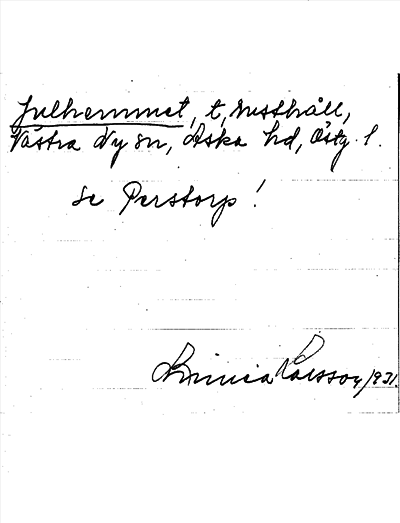 Julhemmet, t, rusthåll,
Västra Ny sn, Aska hd, Östg. l.
se Perstorp!
Linnea Larsson 1931.